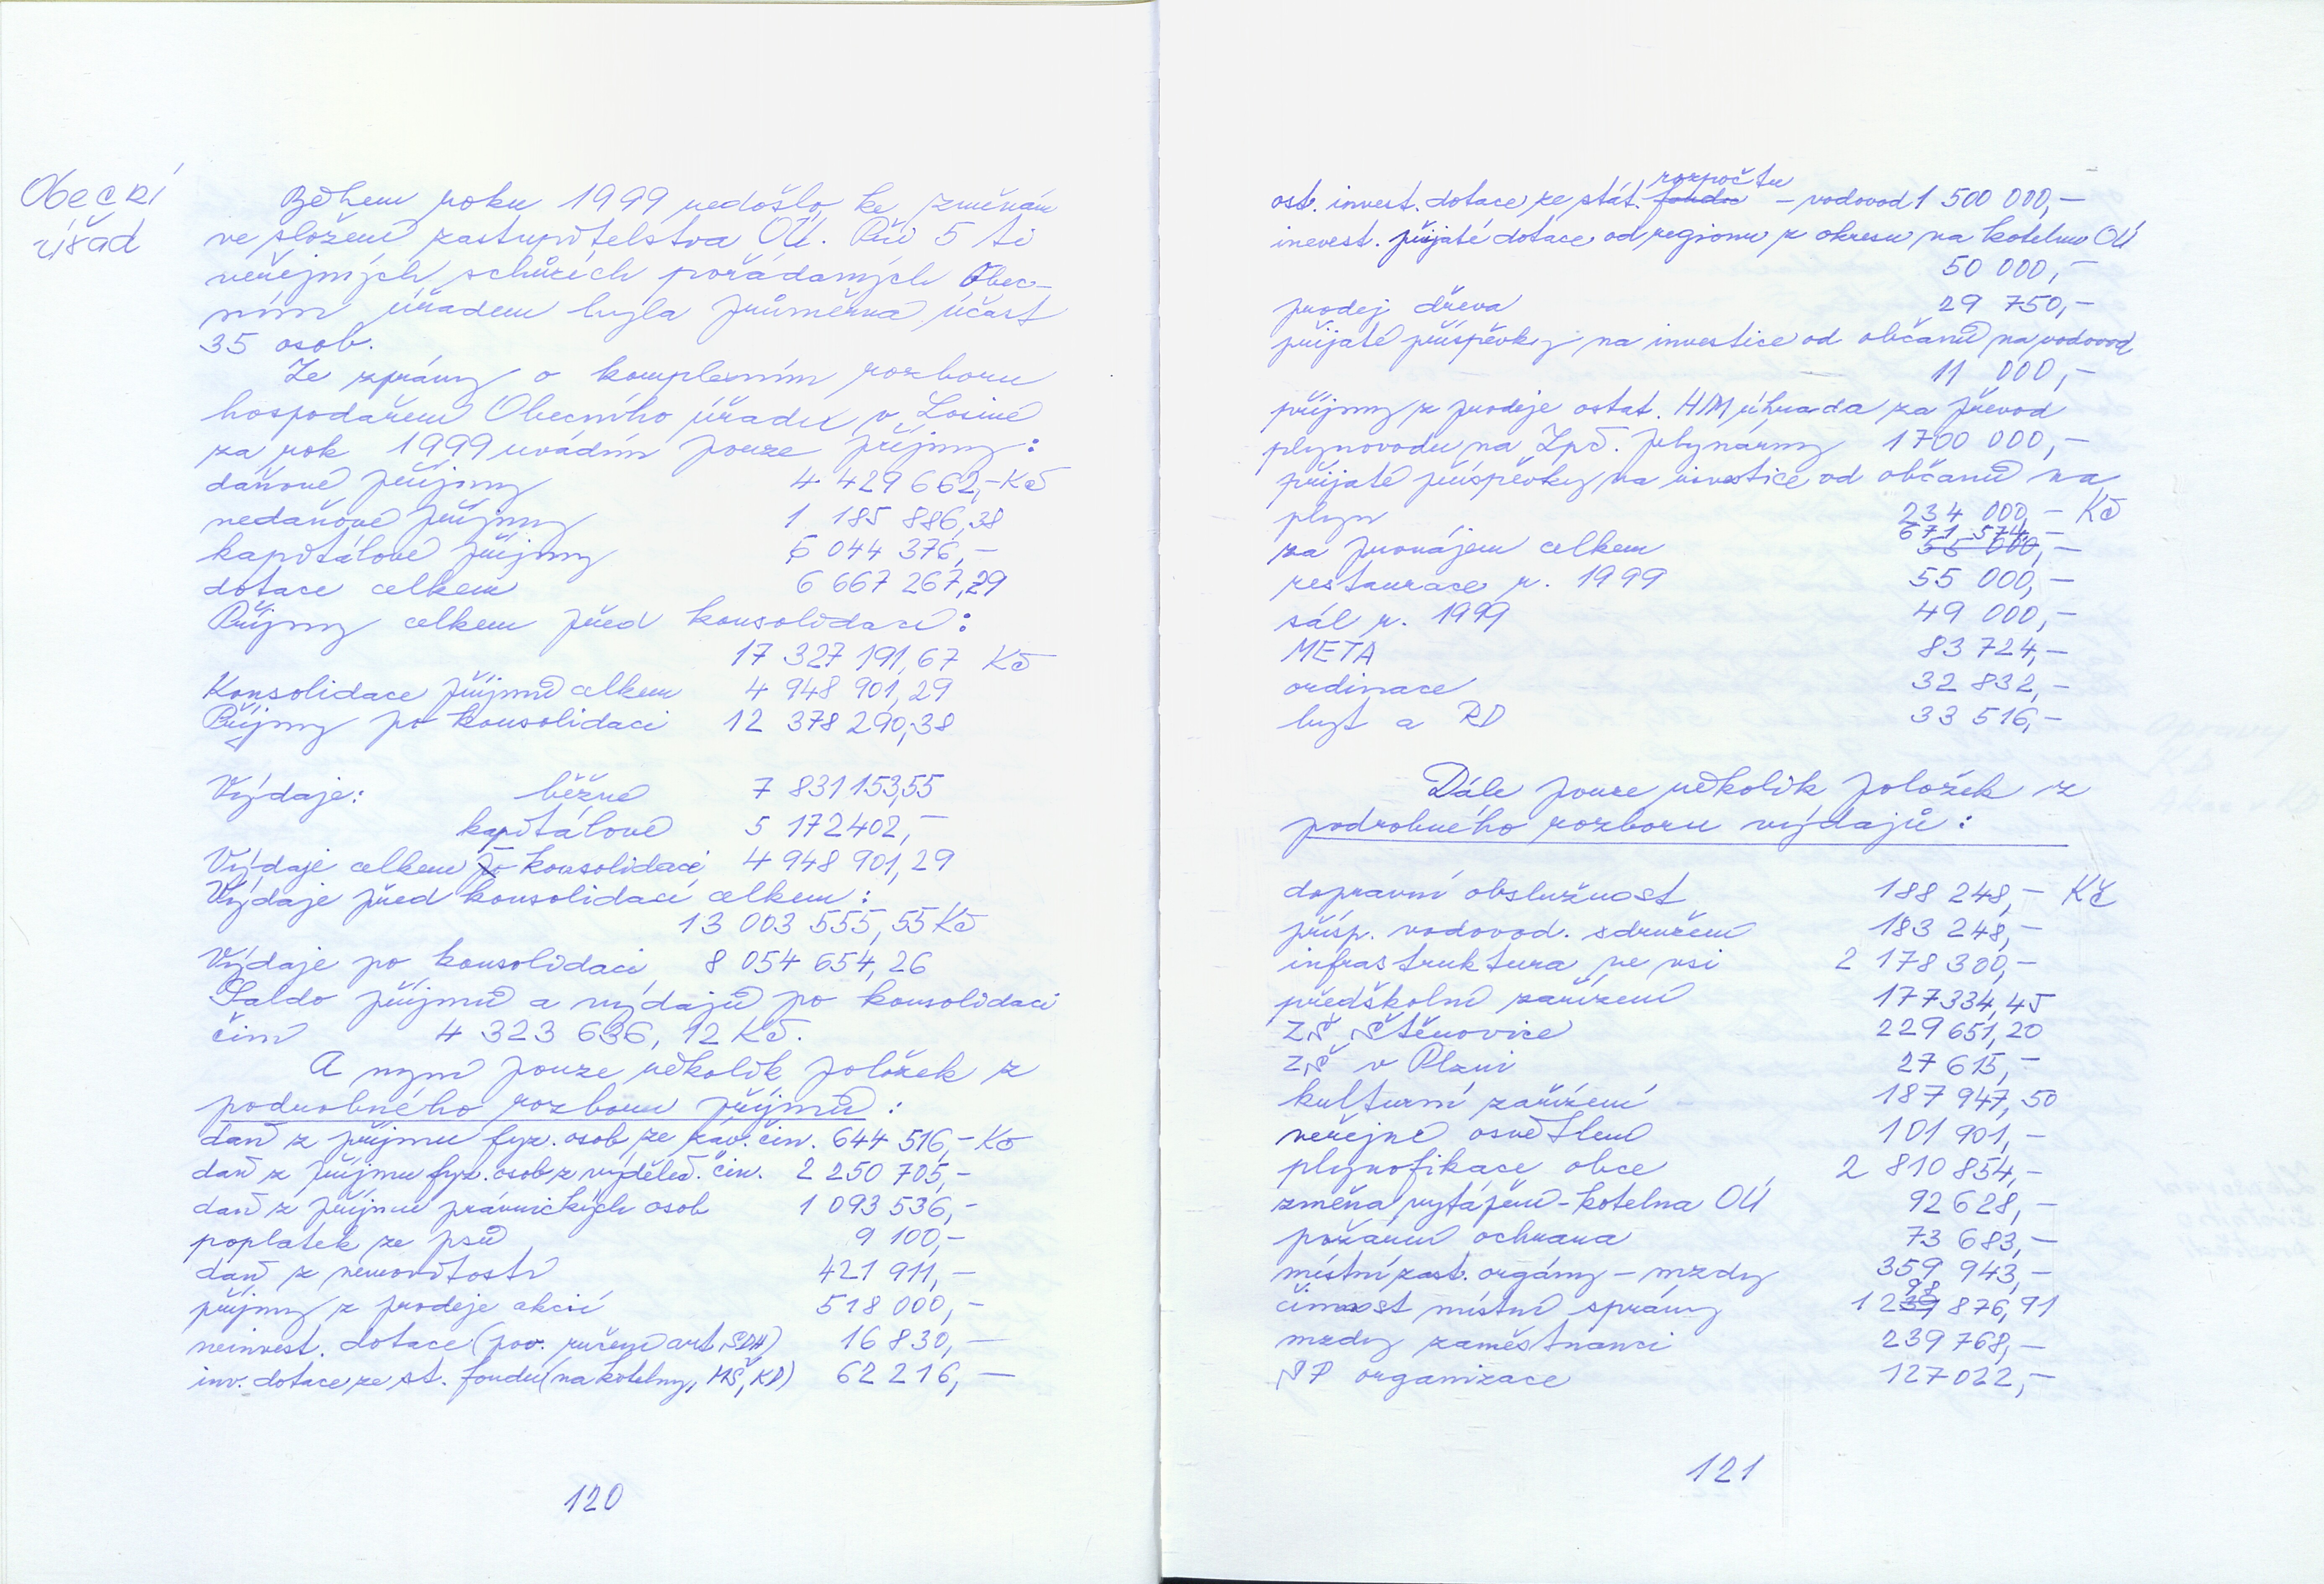 Obecní
úřad
Během roku 1999 nedošlo ke změnám
ve složení zastupitelstva OÚ. Při 5 ti
veřejných schůzích pořádaných Obec-
ním úřadem byla průměrná účast
35 osob.
Ze zprávy o komplexním rozboru
hospodaření Obecního úřadu v Losiné
za rok 1999 uvádím pouze příjmy:
daňové příjmy 4 429 662,- Kč
nedaňové příjmy 1 185 886,38
kapitálové příjmy 5 044 376,-
dotace celkem 6 667 267,29
Příjmy celkem před konsolidací:
17 327 191,67 Kč
Konsolidace příjmů celkem 4 948 901,29
Příjmy po konsolidaci 12 378 290,38
Výdaje: běžné 7 831 153,55
kapitálové 5 172 402,-
Výdaje celkem konsolidaci 4 948 901,29
Výdaje před konsolidací celkem:
13 003 555,55 Kč
Výdaje po konsolidaci 8 054 654,26
Saldo příjmů a výdajů po konsolidaci
činí 4 323 636,12 Kč.
A nyní pouze několik položek z
podrobného rozboru příjmů:
daň z příjmu fyz. osob ze záv. čin. 644 516,- Kč
daň z příjmu fyz. osob z výděleč. čin. 2 250 705,-
daň z příjmu právnických osob 1 093 536,-
poplatek ze psů 9 100,-
daň z nemovitostí 421 911,-
příjmy z prodeje akcií 518 000,-
neinvest. dotace (pov. ručení aut. SDH) 16 830,-
inv. dotace ze st. fondu (na kotelny, MŠ, KD) 62 216,-
120
rozpočtu
ost. invest. dotace ze stát. fondu - vodovod 1 500 000,-
inevest. přijaté dotace od regionu z okresu na kotelnu OÚ
50 000,-
prodej dřeva 29 750,-
přijaté příspěvky na investice od občanů na vodovod
11 000,-
příjmy z prodeje ostat. HIM úhrada za převod
plynovodu na Zpč. plynárny 1 700 000,-
přijaté příspěvky na investice od občanů na
plyn 234 000,- Kč
671 574,-
za pronájem celkem 55 000,-
restaurace r. 1999 55 000,-
sál r. 1999 49 000,-
META 83 724,-
ordinace 32 832,-
byt a RD 33 516,-
Dále pouze několik položek z
podrobného rozboru výdajů:
dopravní obslužnost 188 248,- Kč
přísp. vodovod. sdružení 183 248,-
infrastruktura ve vsi 2 178 300,-
předškolní zařízení 177 334,45
ZŠ Štěnovice 229 651,20
ZŠ v Plani 27 615,-
kulturní zařízení 187 947,50
veřejné osvětlení 101 901,-
plynofikace obce 2 810 854,-
změna vytápění - kotelna OÚ 92 628,-
požární ochrana 73 683,-
místní zast. orgány - mzdy 359 943,-
98
činnost místní správy 1 239 876,91
mzdy zaměstnanci 239 768,-
SP organizace 127 022,-
121